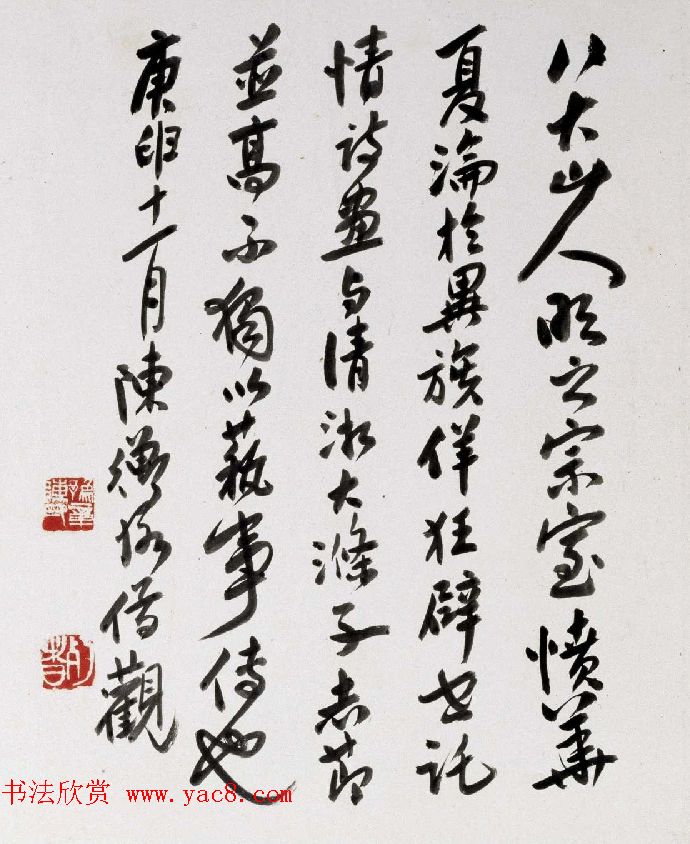 八大山人明之宗室憤華
夏淪於異族佯狂辟世託
情詩畫与清湘大滌子志節
並高不獨以藝事傳也
庚申十一月陳衡恪借觀
书法欣赏 www.yac8.com